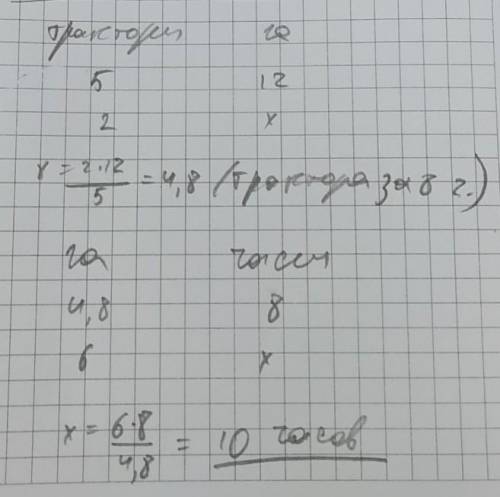 трактори га
5 12
2 x
x = 2·12/5 = 4,8 (трактора за 8 г.)
га часы
4,8 8
6 x
x = 6·8/4,8 = 10 часов